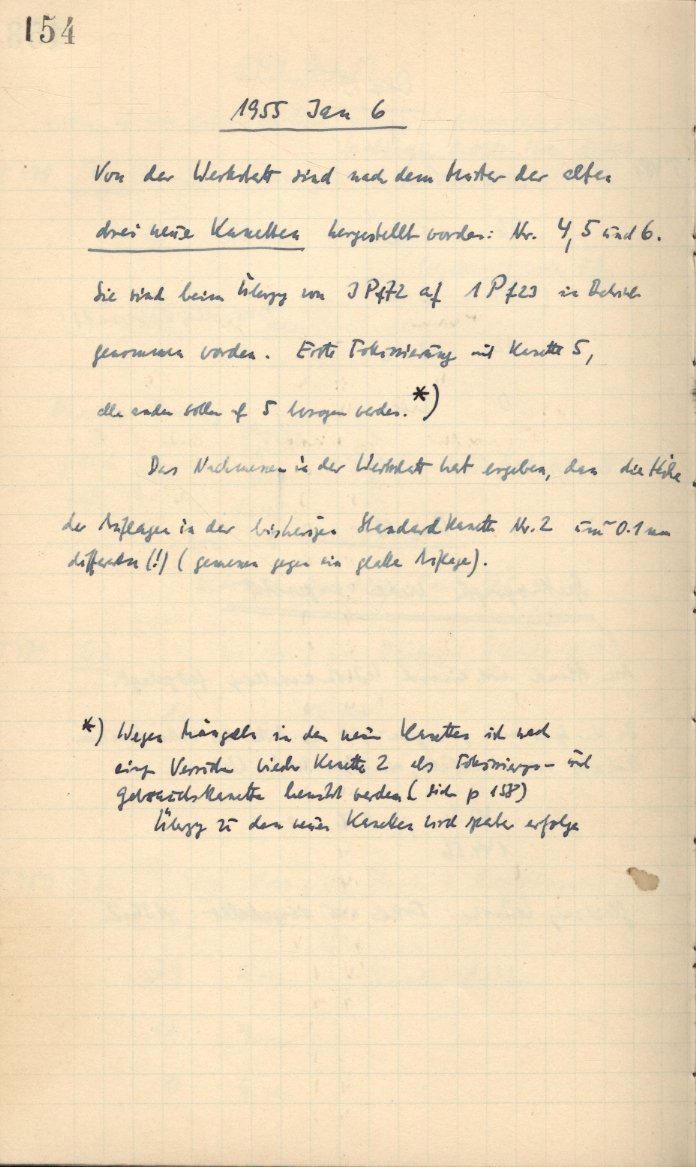 154
1955 Jan 6
Von der Werkstatt sind nach dem Muster der alten
drei neue Kassetten hergestellt worden: Nr. 4, 5 und 6.
Sie sind beim Überg von 3 Pf72 auf 1 Pf23 in Betrieb
genommen worden. Erste Fokussierung mit Kasette 5,
alle anderen sollen auf 5 bezogen werden. *)
Das Nachmessen in der Werkstatt hat ergeben, dass die Höhe
der Auflagen in der bisherigen Standardkasette Nr. 2 um 0.1 mm
differieren (!) (gemessen gegen ein glatte Auflage).
*) Wegen Mängeln in den neuen Kasetten ist nach
einigen Versuchen wieder Kasette 2 als Fokussierungs- und
Gebrauchskasette benutzt worden (siehe p 158)
Überg zu den neuen Kasetten wird später erfolgen